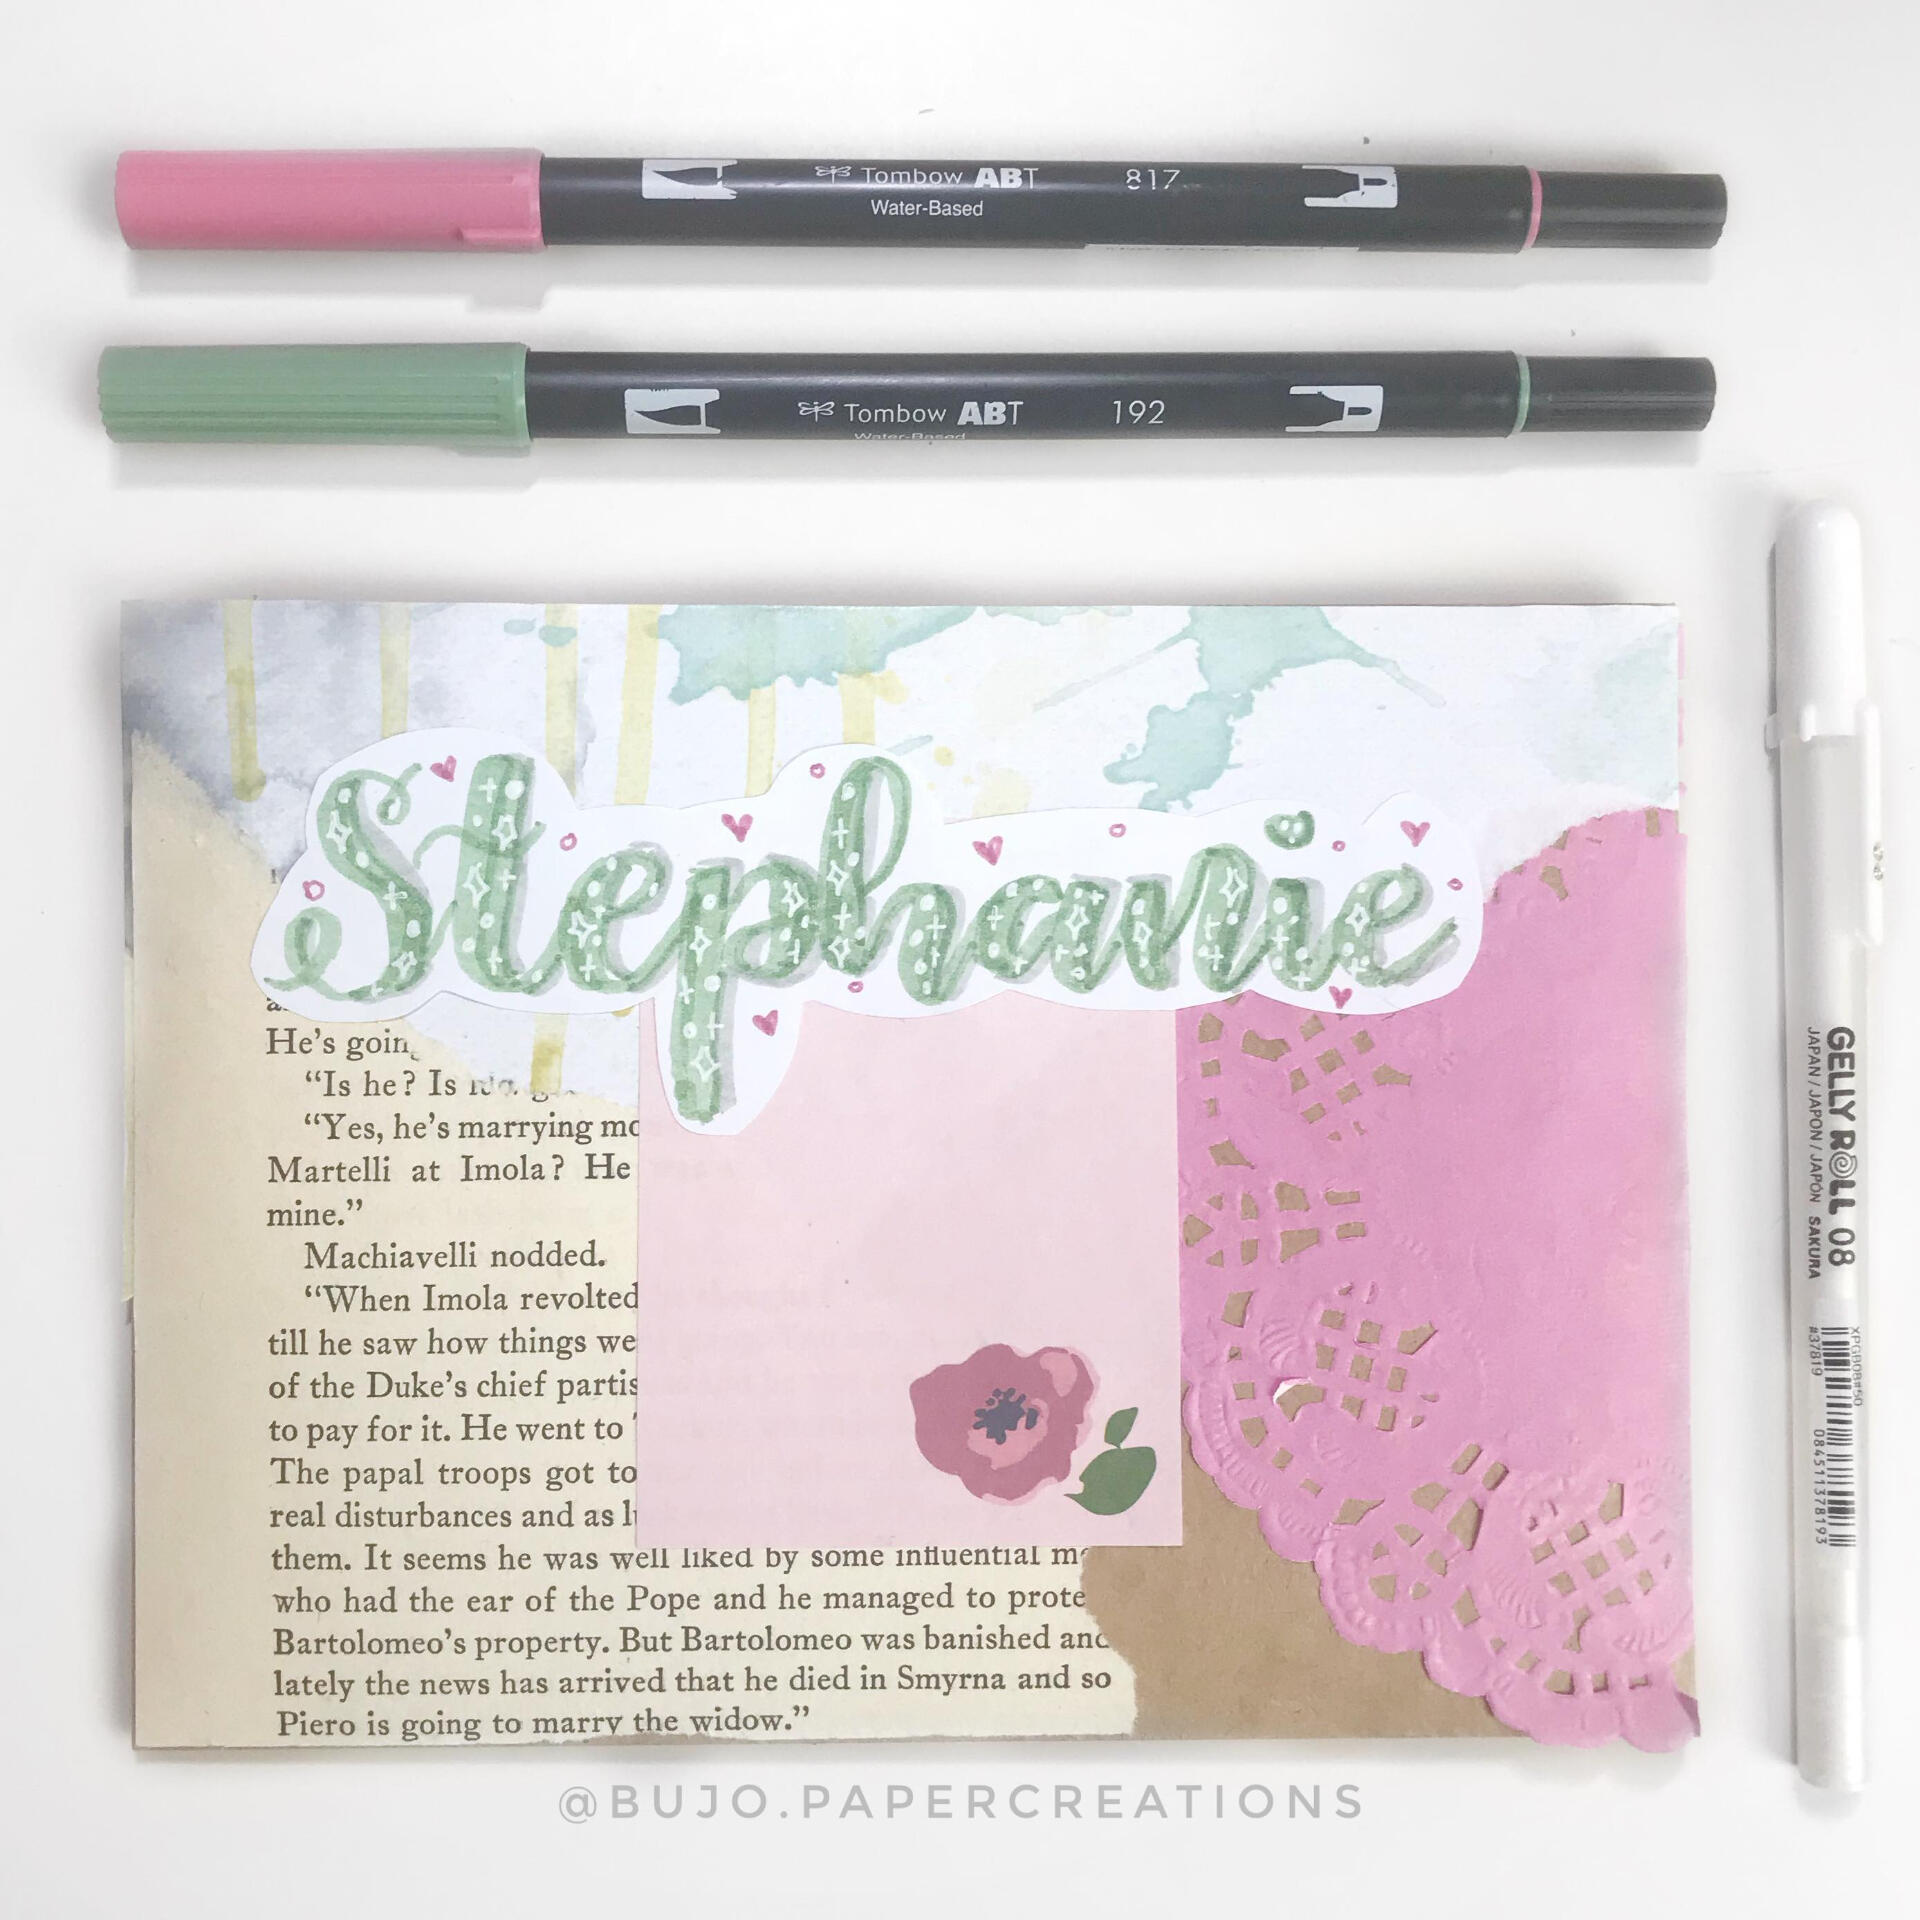 Tombow ABT 817
Water-Based
Tombow ABT 192
Water-Based
Stephanie
He's goin
“Is he? Is
“Yes, he's marrying mo
Martelli at Imola? He
mine.”
Machiavelli nodded.
“When Imola revolted
till he saw how things we
of the Duke's chief partis
to pay for it. He went to
The papal troops got to
real disturbances and as l
them. It seems he was well liked by some influential m
who had the ear of the Pope and he managed to prote
Bartolomeo's property. But Bartolomeo was banished and
lately the news has arrived that he died in Smyrna and so
Piero is going to marry the widow.”
GELLY ROLL 08
JAPAN / JAPON / JAPÓN SAKURA
XPGB08#50
#37819
084511378193
@BUJO.PAPERCREATIONS